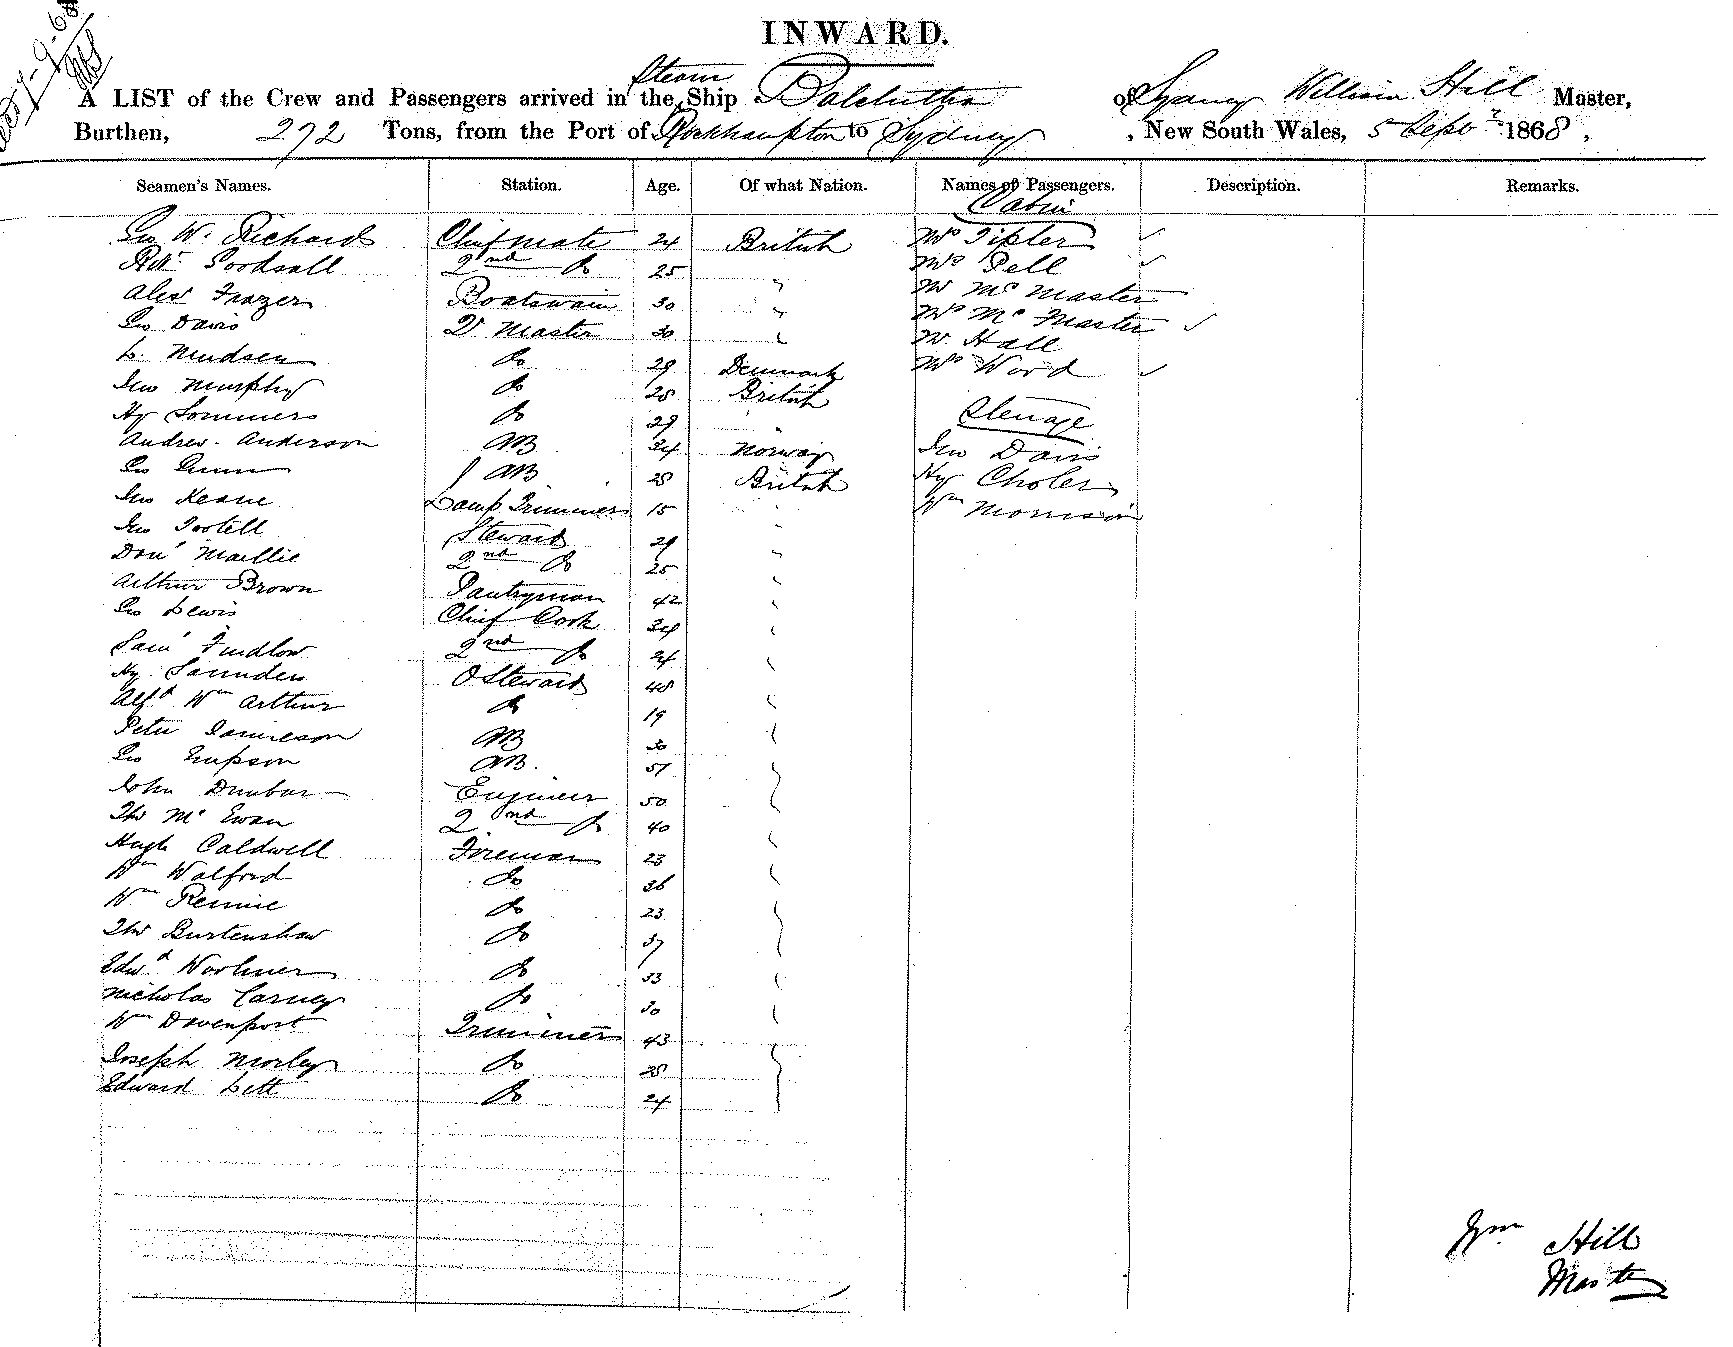 INWARD.
A LIST of the Crew and Passengers arrived in the Steam Ship Balclutha of Sydney William Hill Master,
Burthen, 272 Tons, from the Port of Rockhampton to Sydney, New South Wales, 5 Sept 1868.
Seamen's Names. Station. Age. Of what Nation. Names of Passengers. Description. Remarks.
Cabin
Geo W. Richards Chief Mate 24 British Mrs Tipler
Robt Goodsall 2nd Do 25 " Mrs Pell
Alex Frazer Boatswain 30 " Mr McMaster
Geo Davis Qr Master 30 " Mrs McMaster
L. Mudsen Do 29 Denmark Mr Hall
Jno Murphy Do 28 British Mrs Word
Hy Sommers Do 29 "
Steerage
Andrew Anderson AB 24 Norway Jno Davis
Geo Gunn AB 28 British Hy Choler
Jno Keane Lamp Trimmer 15 " Wm Morrison
Jno Tootell Steward 29 "
Dond Maillie 2nd Do 25 "
Arthur Brown Pantryman 42 "
Geo Lewis Chief Cook 34 "
Saml Findlow 2nd Do 24 "
Hy Saunders O Steward 48 "
Alfd Wm Arthur Do 19 "
Peter Jamieson AB 30 "
Geo Simpson AB. 51
John Dunbar Engineer 50
Thos McEwan 2nd Do 40 "
Hugh Caldwell Fireman 23 "
Wm Walford Do 36 "
Wm Rennie Do 23
Thos Burtenshaw Do 37
Edwd Do 33 "
Nicholas Carney Do 30 "
Wm Davenport Trimmer 43
Joseph Morley Do 28
Edward Lett Do 24
Wm Hill
Master